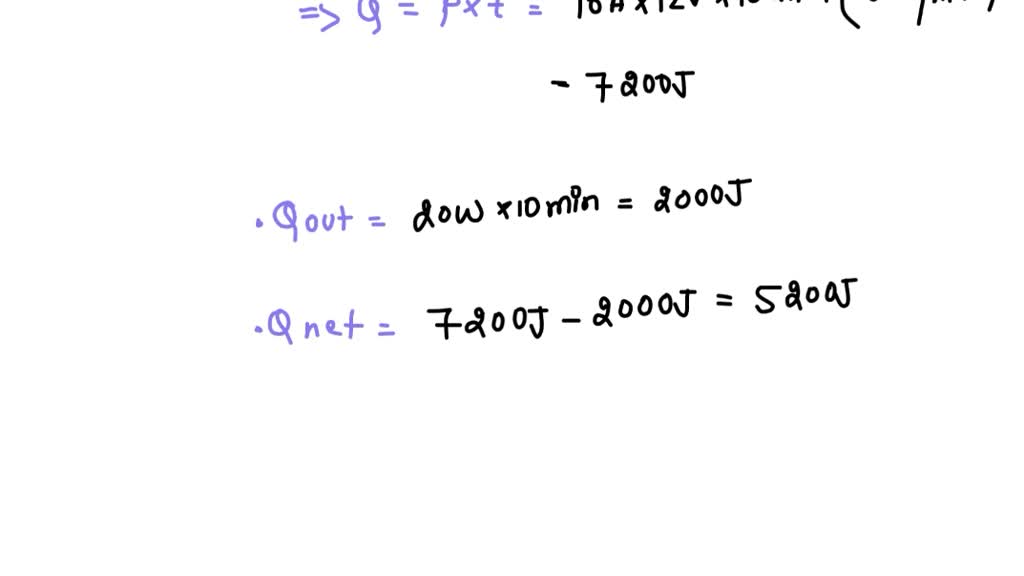 => Q = P×t = 10A×12V×10
- 7200J
. Qout = 20W ×10min = 2000J
. Qnet = 7200J - 2000J = 5200J